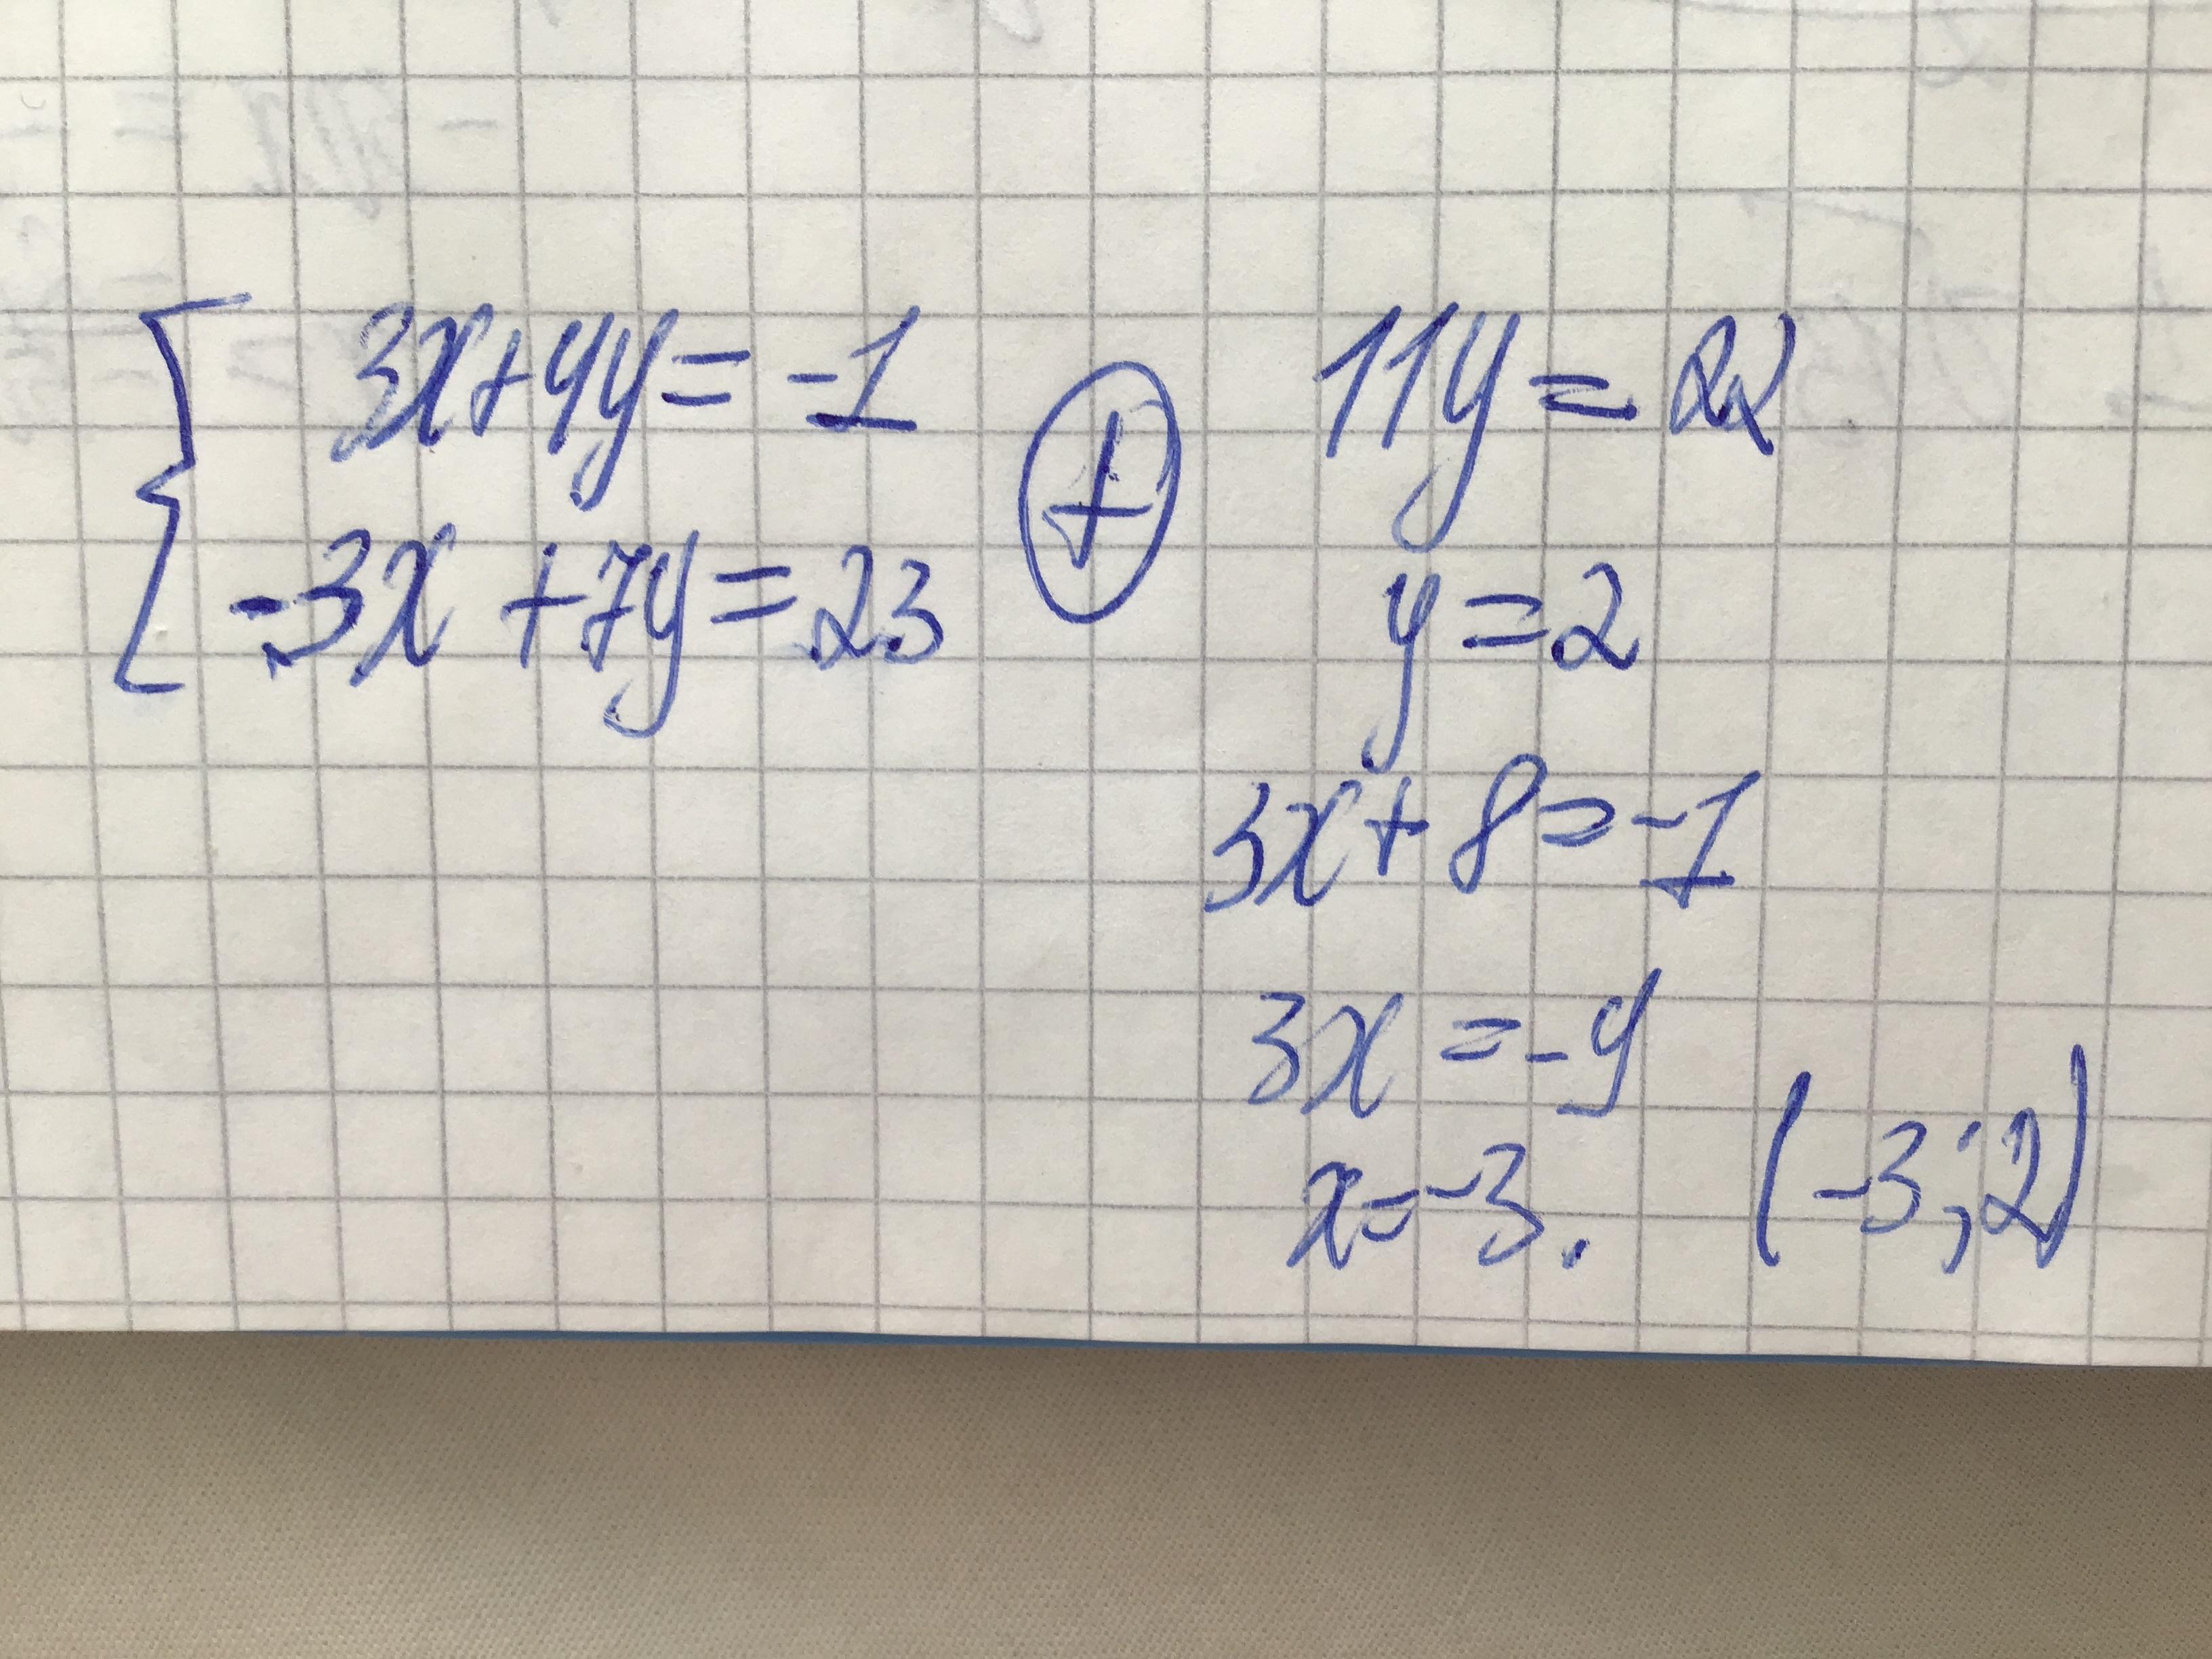 3x+4y=-1
-3x+7y=23
+
11y=22
y=2
3x+8=-1
3x=-9
x=-3.
(-3;2)